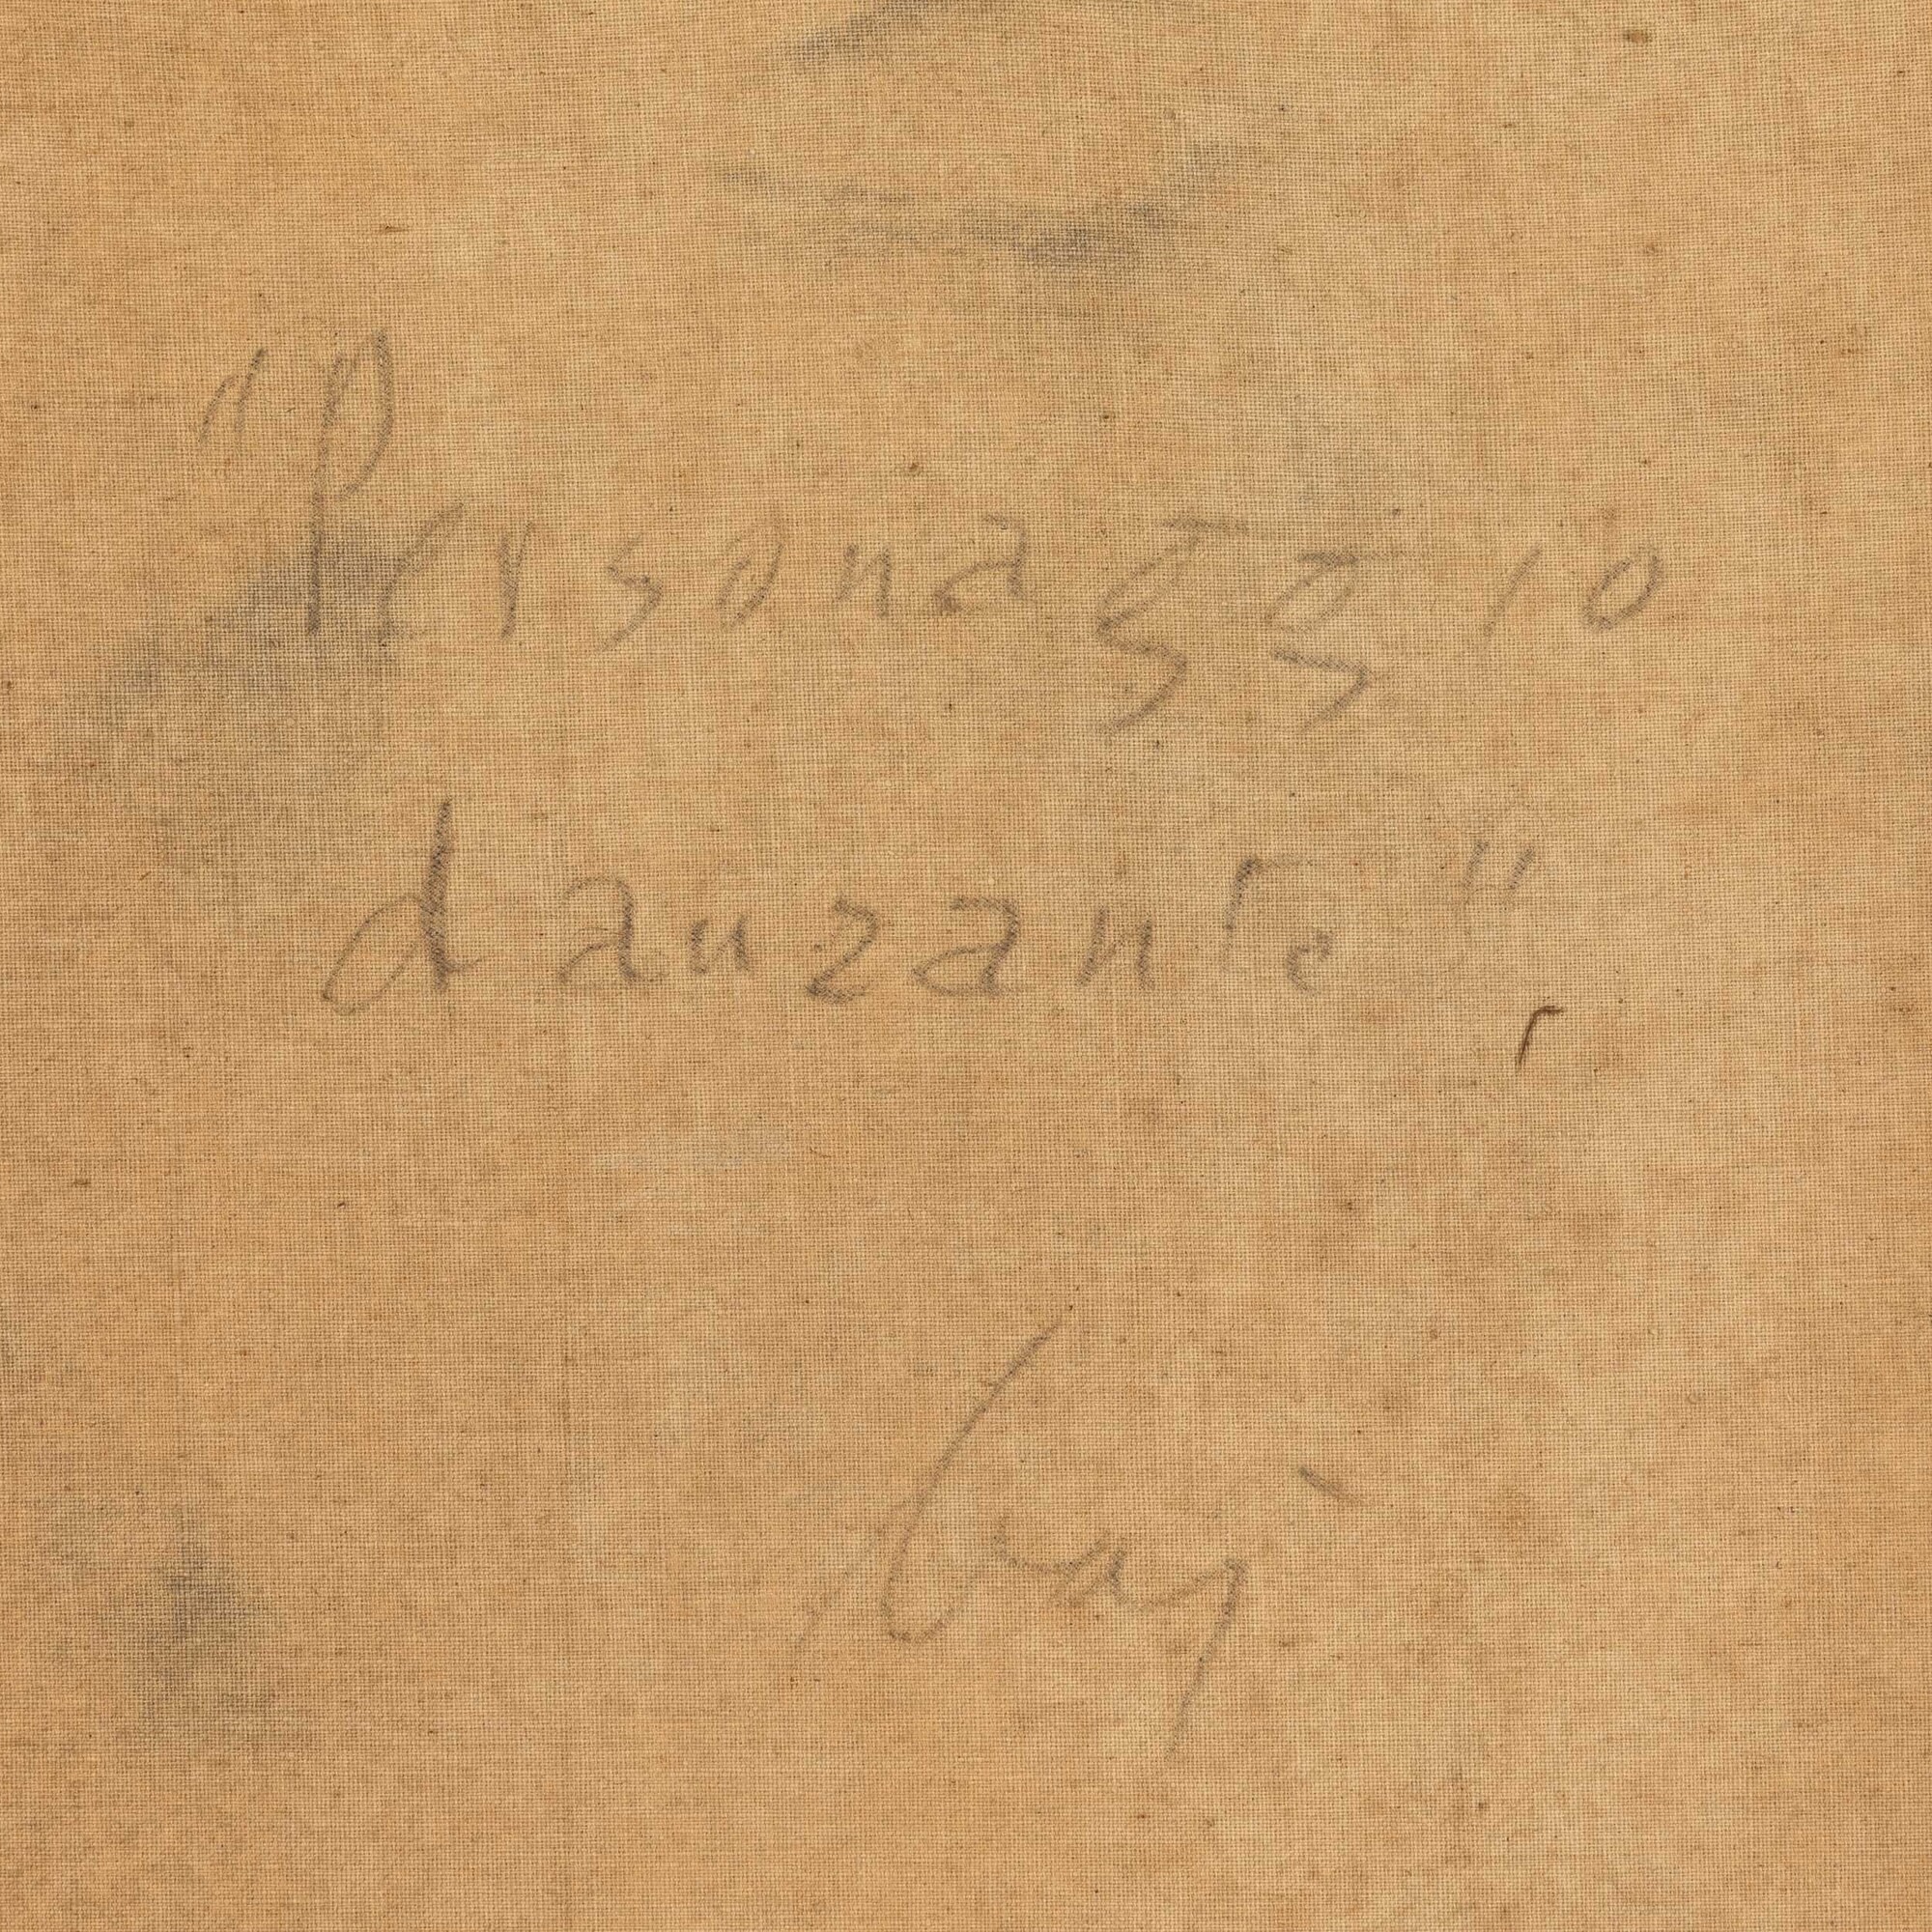 "Personaggio
danzante"